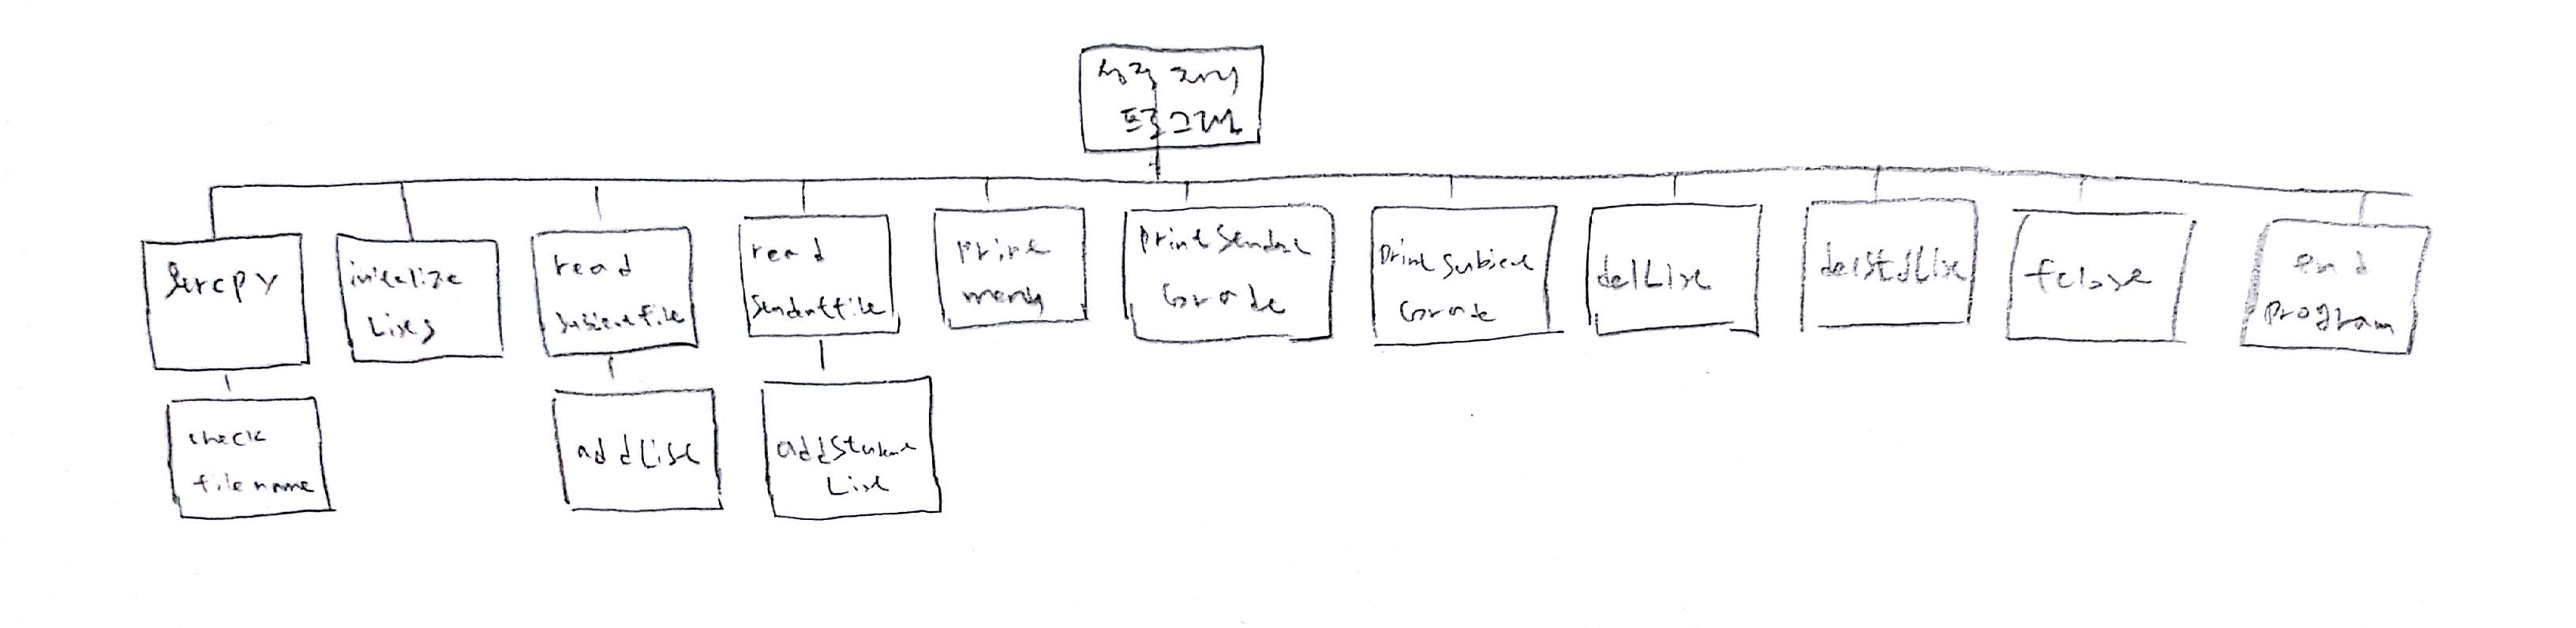 성적 처리
프로그램
strcpy
initialize
Lists
read
subjectfile
read
Studentfile
print
menu
print Student
Grade
print Subject
Grade
delList
delStdList
fclose
end
program
check
filename
addList
addStudent
List